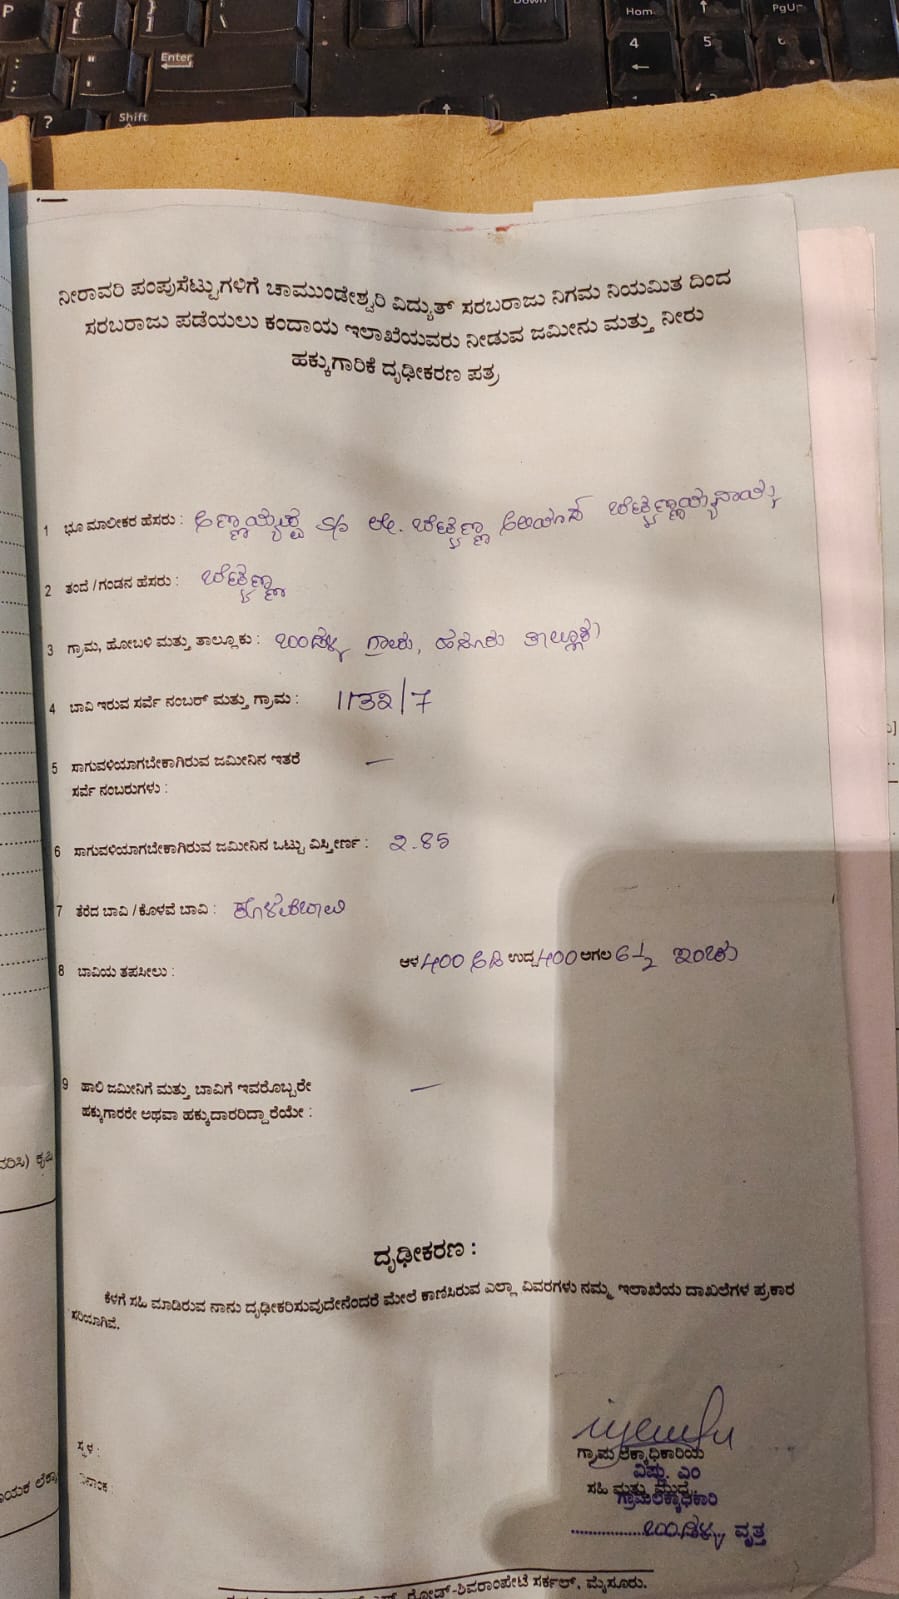 P
{
[
}
]
|
\
:
;
"
'
Enter
?
Shift
Down
Hom
PgUp
4
5
6
ನೀರಾವರಿ ಪಂಪುಸೆಟ್ಟುಗಳಿಗೆ ಚಾಮುಂಡೇಶ್ವರಿ ವಿದ್ಯುತ್ ಸರಬರಾಜು ನಿಗಮ ನಿಯಮಿತ ದಿಂದ
ಸರಬರಾಜು ಪಡೆಯಲು ಕಂದಾಯ ಇಲಾಖೆಯವರು ನೀಡುವ ಜಮೀನು ಮತ್ತು ನೀರು
ಹಕ್ಕುಗಾರಿಕೆ ದೃಢೀಕರಣ ಪತ್ರ
1 ಭೂ ಮಾಲೀಕರ ಹೆಸರು : S/o ಲೇ. ಬೆಟ್ಟಣ್ಣ
2 ತಂದೆ / ಗಂಡನ ಹೆಸರು : ಬೆಟ್ಟಣ್ಣ
3 ಗ್ರಾಮ, ಹೋಬಳಿ ಮತ್ತು ತಾಲ್ಲೂಕು : ತಾಲ್ಲೂಕು
4 ಬಾವಿ ಇರುವ ಸರ್ವೆ ನಂಬರ್ ಮತ್ತು ಗ್ರಾಮ :
5 ಸಾಗುವಳಿಯಾಗಬೇಕಾಗಿರುವ ಜಮೀನಿನ ಇತರೆ —
ಸರ್ವೆ ನಂಬರುಗಳು :
6 ಸಾಗುವಳಿಯಾಗಬೇಕಾಗಿರುವ ಜಮೀನಿನ ಒಟ್ಟು ವಿಸ್ತೀರ್ಣ : 2.85
7 ತೆರೆದ ಬಾವಿ / ಕೊಳವೆ ಬಾವಿ : ಕೊಳವೆಬಾವಿ
8 ಬಾವಿಯ ತಪಸೀಲು : ಆಳ 400 ಅಡಿ ಉದ್ದ 400 ಅಗಲ 6½ ಇಂಚು
9 ಹಾಲಿ ಜಮೀನಿಗೆ ಮತ್ತು ಬಾವಿಗೆ ಇವರೊಬ್ಬರೇ —
ಹಕ್ಕುಗಾರರೇ ಅಥವಾ ಹಕ್ಕುದಾರರಿದ್ದಾರೆಯೇ :
ದೃಢೀಕರಣ :
ಕೆಳಗೆ ಸಹಿ ಮಾಡಿರುವ ನಾನು ದೃಢೀಕರಿಸುವುದೇನೆಂದರೆ ಮೇಲೆ ಕಾಣಿಸಿರುವ ಎಲ್ಲಾ ವಿವರಗಳು ನಮ್ಮ ಇಲಾಖೆಯ ದಾಖಲೆಗಳ ಪ್ರಕಾರ
ಸರಿಯಾಗಿವೆ.
ಸ್ಥಳ :
ದಿನಾಂಕ :
ಗ್ರಾಮ ಲೆಕ್ಕಾಧಿಕಾರಿಯ
ವಿಷ್ಣು. ಎಂ
ಸಹಿ ಮತ್ತು ಮುದ್ರೆ
ಗ್ರಾಮಲೆಕ್ಕಾಧಿಕಾರಿ
ವೃತ್ತ
ರೋಡ್-ಶಿವರಾಂಪೇಟೆ ಸರ್ಕಲ್, ಮೈಸೂರು.